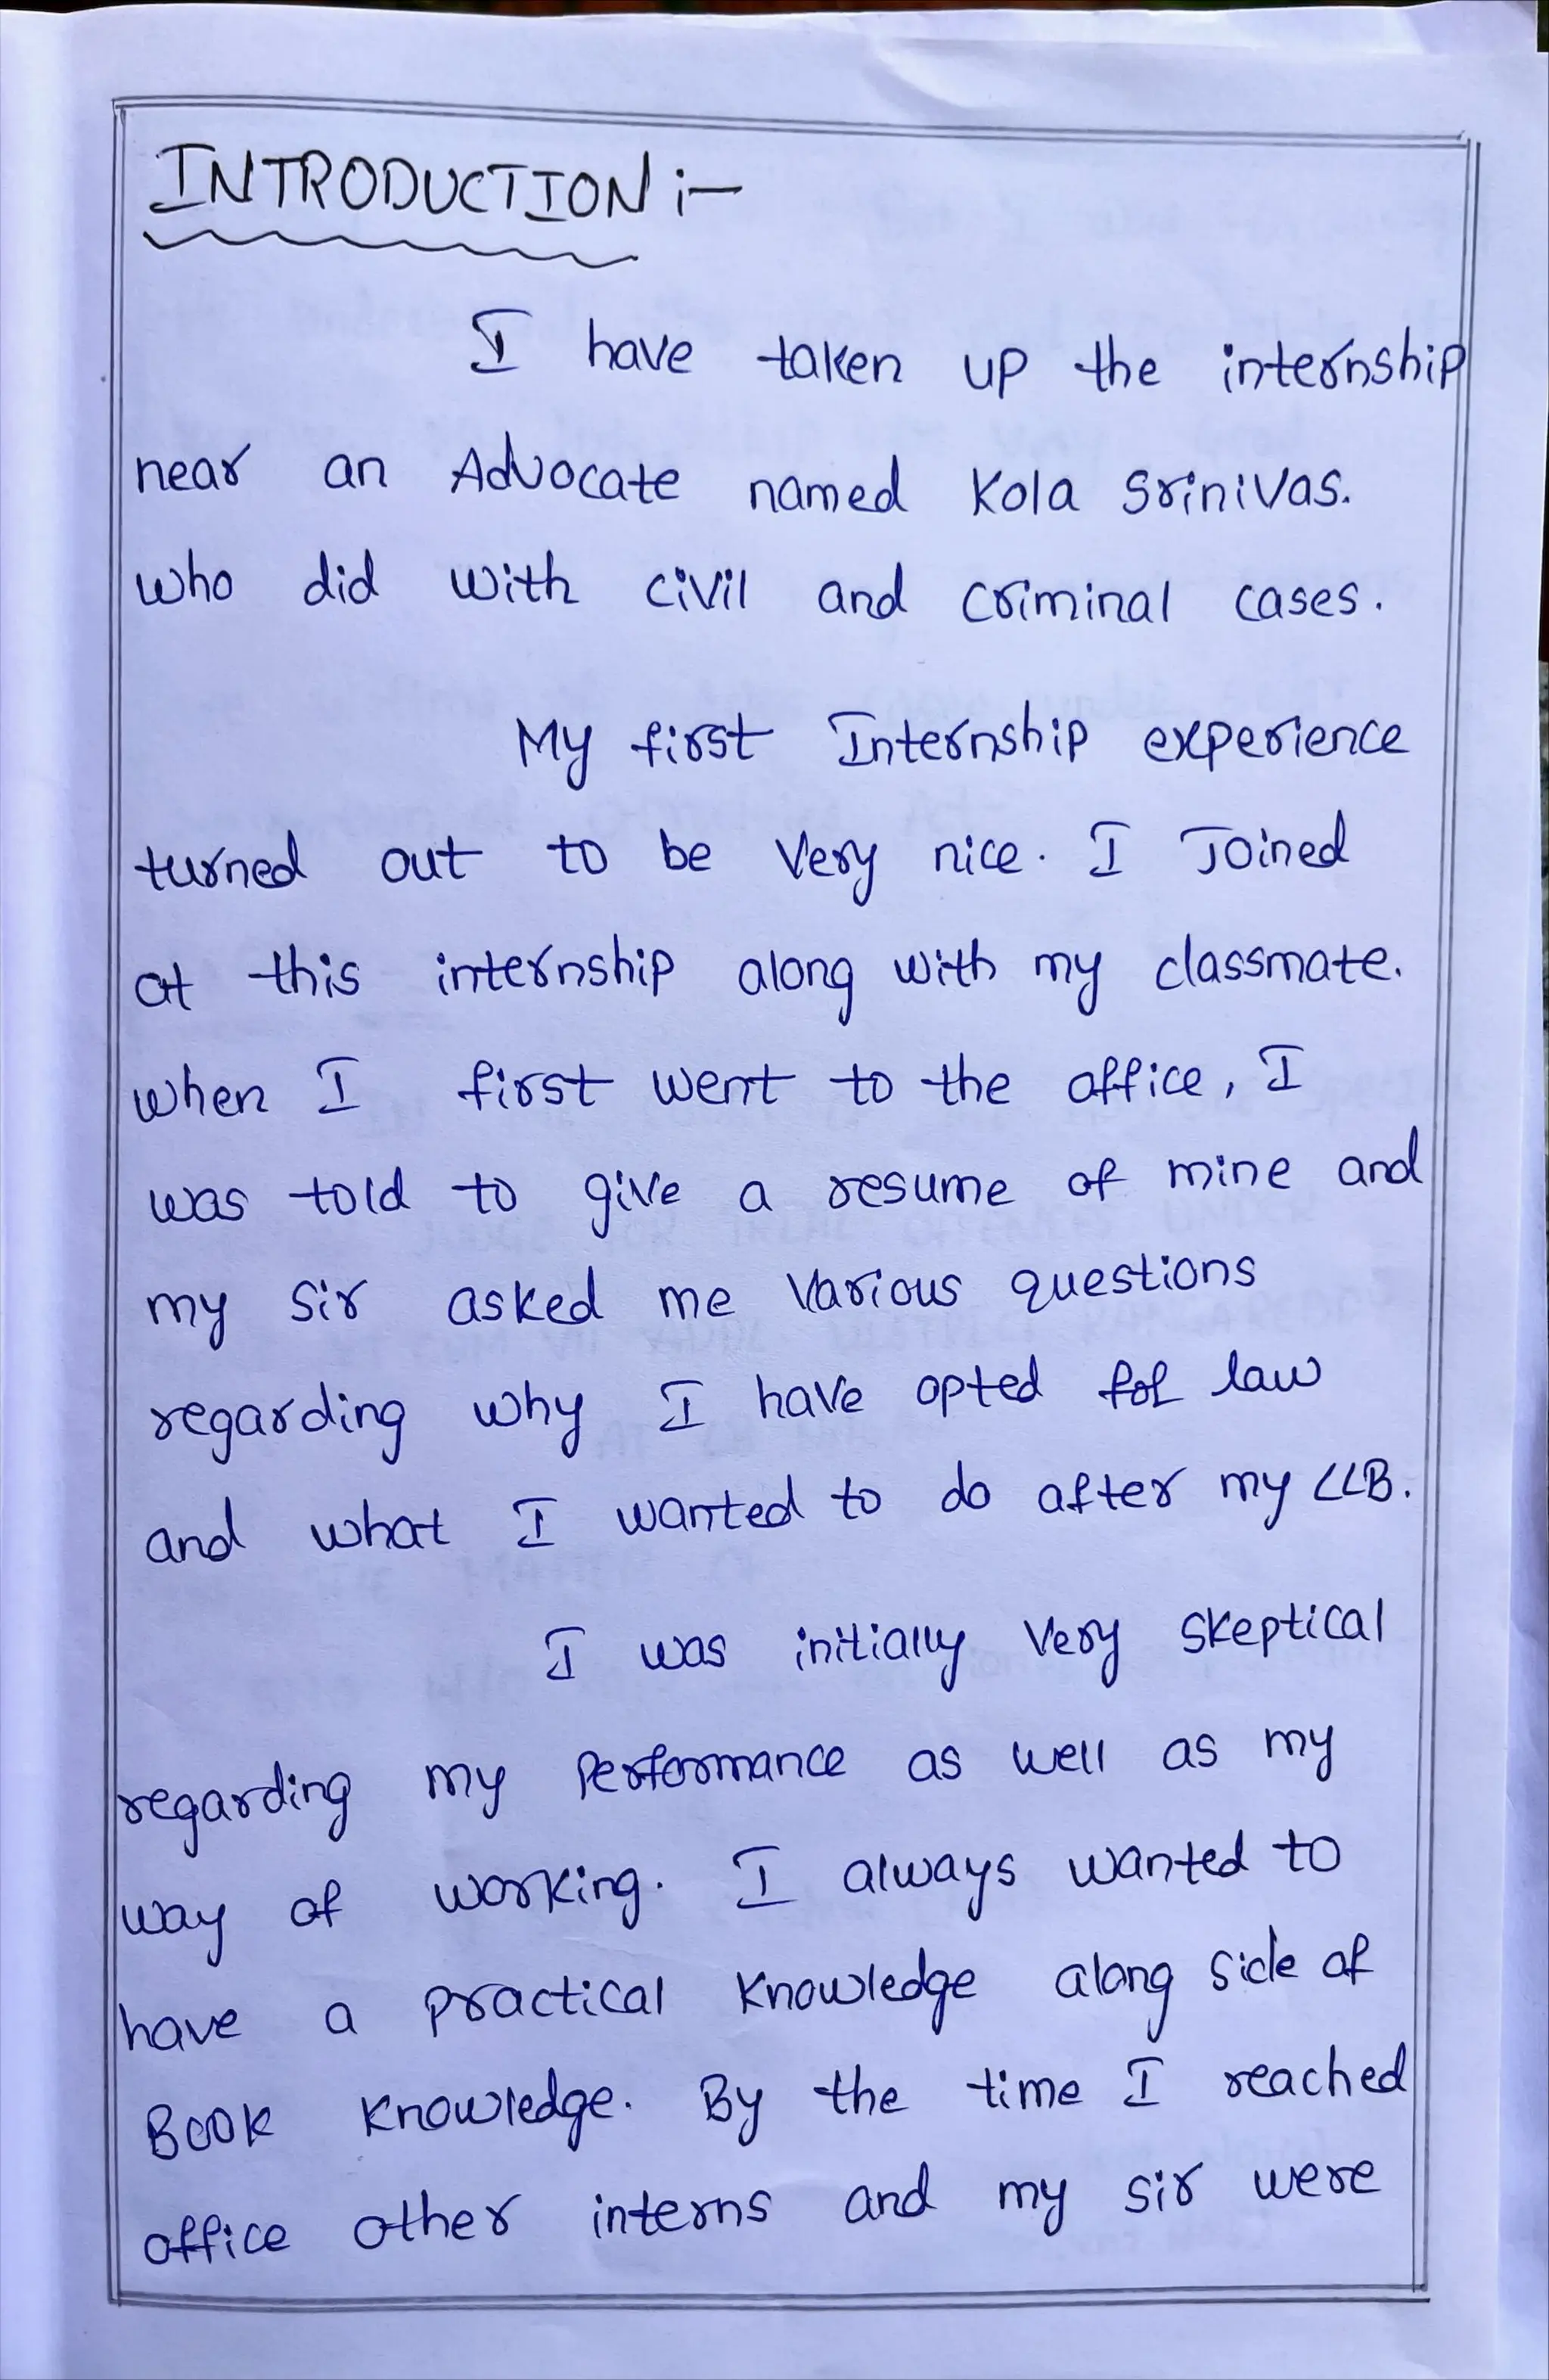 INTRODUCTION :-
I have taken up the internship
near an Advocate named Kola Srinivas.
who did with civil and criminal cases.
My first Internship experience
turned out to be very nice. I Joined
at this internship along with my classmate.
when I first went to the office, I
was told to give a resume of mine and
my sir asked me various questions
regarding why I have opted for law
and what I wanted to do after my LLB.
I was initially very skeptical
regarding my Performance as well as my
way of working. I always wanted to
have a practical knowledge along side of
Book knowledge. By the time I reached
office other interns and my sir were